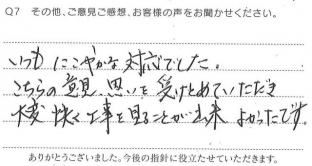 Q7 その他、ご意見ご感想、お客様の声をお聞かせください。
いつも にこやかな 対応でした。
こちらの 意見、思いを 受けとめていただき
大変 快く 工事を 見ることが出来 よかったです。
ありがとうございました。今後の指針に役立たせていただきます。